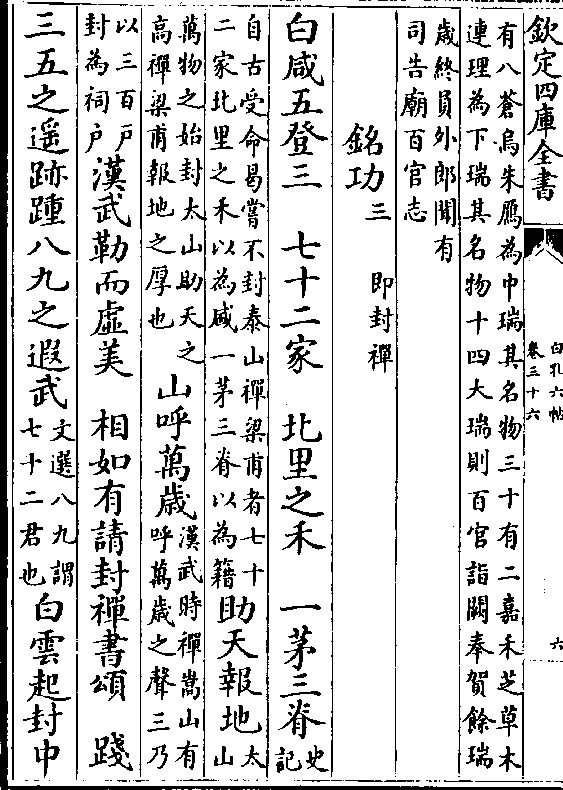 欽定四庫全書
白孔六帖
卷三十六
六
有八蒼烏朱鴈為中瑞其名物三十有二嘉禾芝草木
連理為下瑞其名物十四大瑞則百官詣闕奉賀餘瑞
歲終員外郎聞有
司告廟百官志
銘功三 即封禪
白咸五登三 七十二家 北里之禾 一茅三脊史記
自古受命曷嘗不封泰山禪梁甫者七十
二家北里之禾以為盛一茅三脊以為籍助天報地太山
萬物之始封太山助天之
高禪梁甫報地之厚也山呼萬歲漢武時禪嵩山有
呼萬歲之聲三乃
以三百戶
封為祠戶漢武勒而虛美 相如有請封禪書頌 踐
三五之遥跡踵八九之遐武文選八九謂
七十二君也白雲起封中